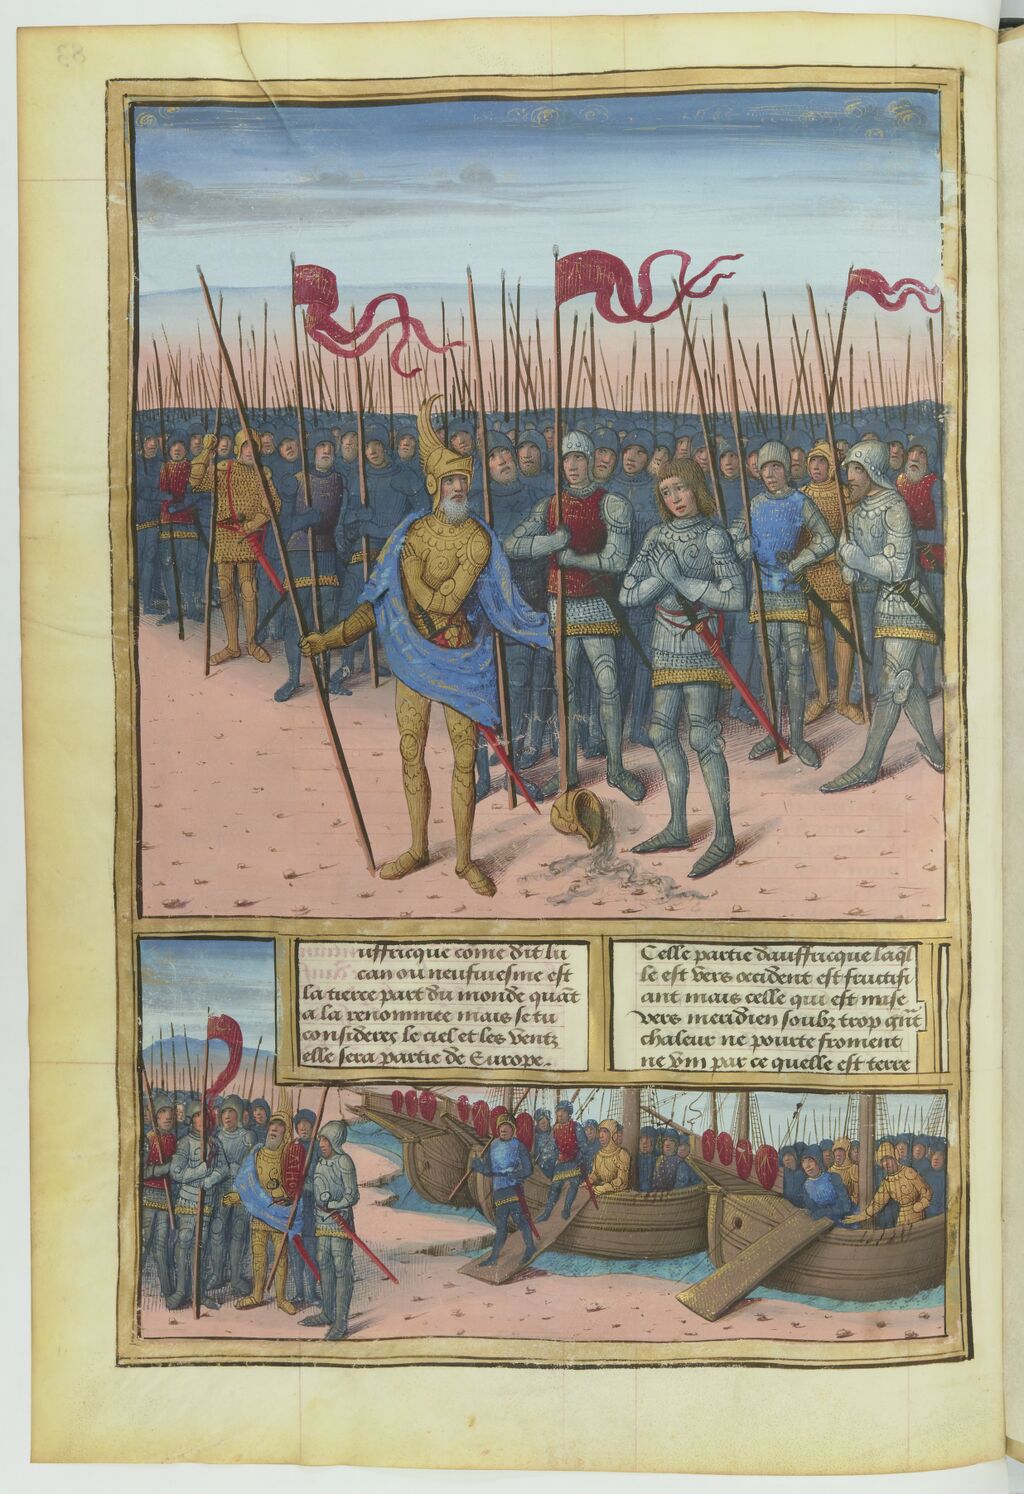 uffricque come dit lu
can ou neufuiesme est
la tierce part du monde quāt
a la renommee mais se tu
consideres le ciel et les ventz
elle sera partie de Europe.
Celle partie dauffricque laq̄l
le est vers occident est fructifi
ant mais celle qui est mise
vers meridien soubz trop gn̄t
chaleur ne pourte froment
ne vin par ce quelle est terre